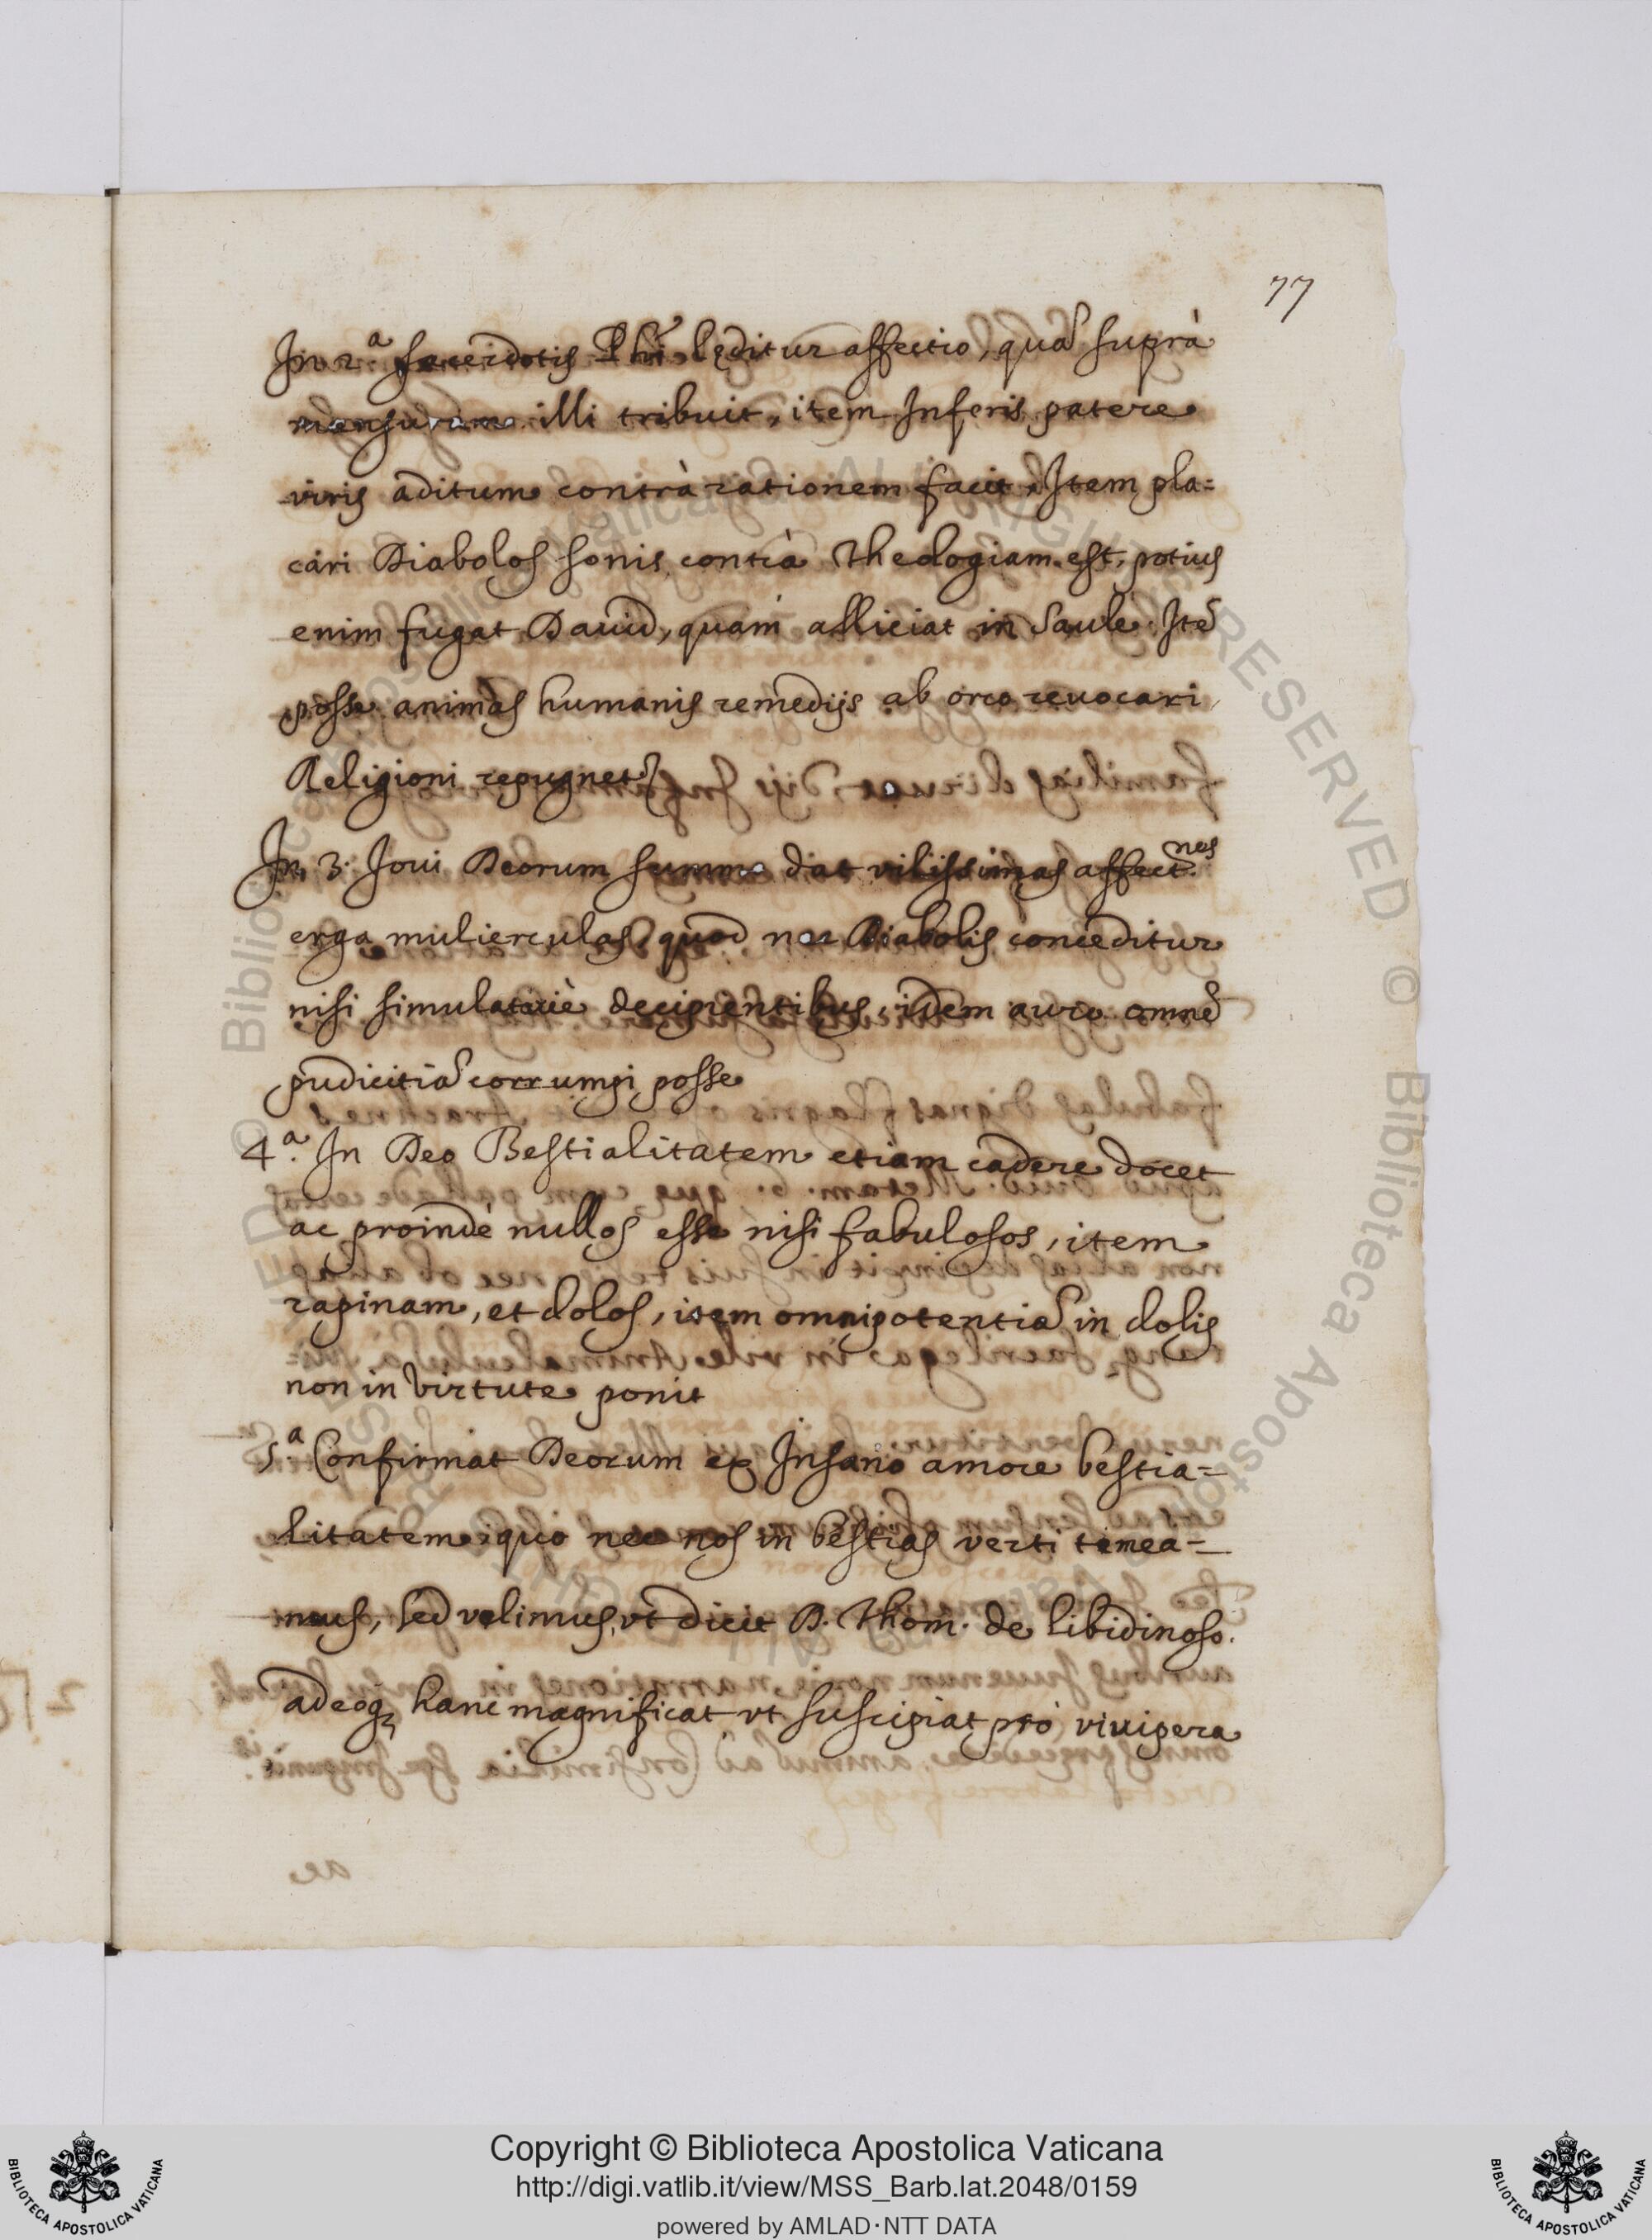 77
In 2.ª sacerdotis Phi lęditur affectio, quã suprà
mensuram illi tribuit, item Inferis patere
viris aditum contrà rationem facit, Item pla=
cari Diabolos sonis contrà Theologiam est, potius
enim fugat Dauid, quàm alliciat in Saule. Itẽ
posse animas humanis remedijs ab orco reuocari,
Religioni repugnet
In 3. Ioui Deorum summo dat vilissimas affect.nes
erga mulierculas, quod nec Diabolis conceditur
nisi simulatiuè decipientibus, idem auro omnẽ
pudicitiã corrumpi posse
4.ª In Deo Bestialitatem etiam cadere docet
ac proindè nullos esse nisi fabulosos, item
rapinam, et dolos, item omnipotentiã in dolis
non in virtute ponit
5.ª Confirmat Deorum ex Insano amore bestia=
litatem, quo nec nos in bestias verti timea=
mus, sed velimus, vt dicit D. Thom. de libidinoso.
adeoq; hanc magnificat vt suscipiat pro vivipera
© Biblioteca Apostolica Vaticana ALL RIGHTS RESERVED © Biblioteca Apostolica Vaticana ALL RIGHTS RESERVED
Copyright © Biblioteca Apostolica Vaticana
http://digi.vatlib.it/view/MSS_Barb.lat.2048/0159
powered by AMLAD·NTT DATA
BIBLIOTECA APOSTOLICA VATICANA
BIBLIOTECA APOSTOLICA VATICANA